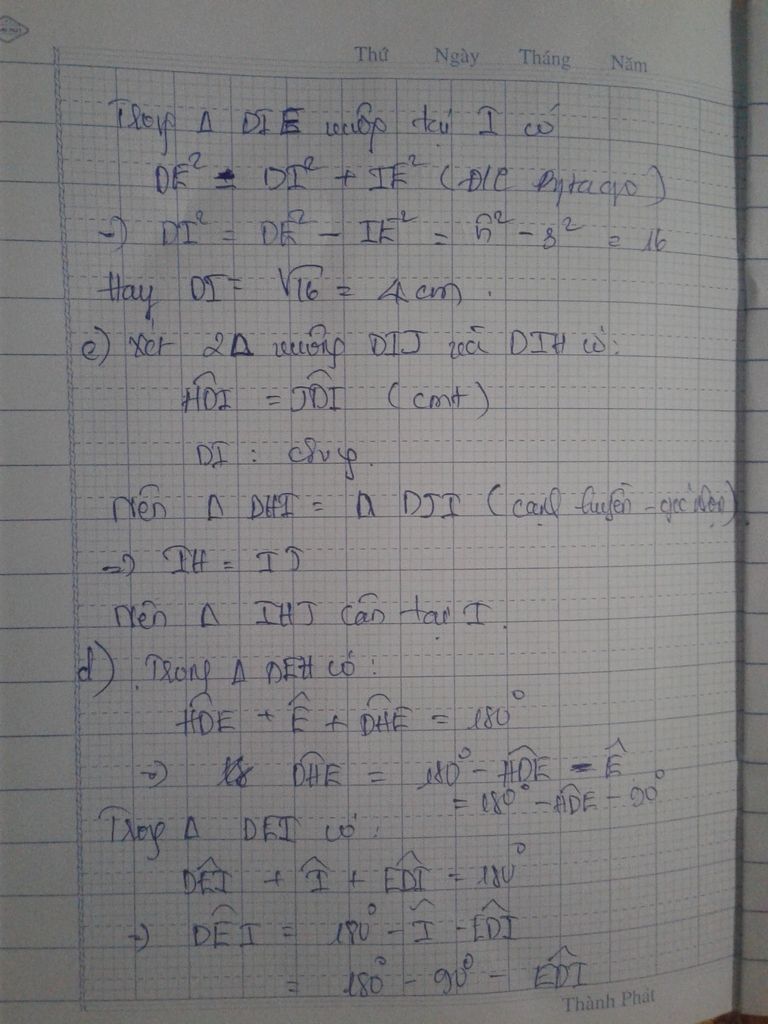 Thứ Ngày Tháng Năm
Trong Δ DIE vuông tại I có
DE² = DI² + IE² (Đ/L Pytago)
=> DI² = DE² - IE² = 5² - 3² = 16
Hay DI = √16 = 4 cm.
c) Xét 2Δ vuông DIJ và DIH có:
HDI = JDI (cmt)
DI : chung.
Nên Δ DHI = Δ DJI (cạnh huyền - góc nhọn)
=> IH = IJ
Nên Δ IHJ cân tại I.
d) Trong Δ DEH có:
HDE + Ê + DHE = 180°
=> DHE = 180° - HDE - Ê
= 180° - HDE - 90°
Trong Δ DEI có:
DEI + Î + EDI = 180°
=> DEI = 180° - Î - EDI
= 180° - 90° - EDI
Thành Phát